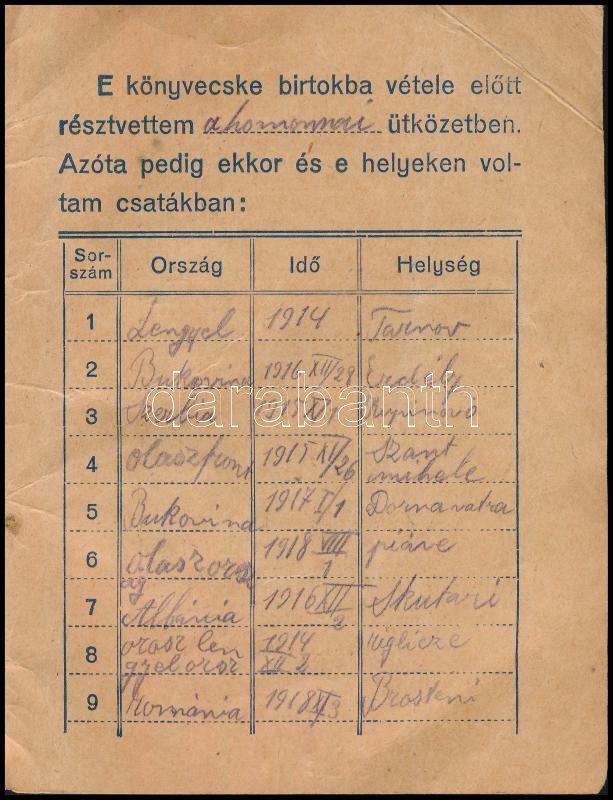 E könyvecske birtokba vétele előtt
résztvettem a homonnai ütközetben.
Azóta pedig ekkor és e helyeken vol-
tam csatákban:
Sor-
szám Ország Idő Helység
1 Lengyel 1914 Tarnov
2 Bukovina 1916 XII/29 Erdély
3 Szerbia 1915 XI/1
darabanth
4 olaszfront 1915 XII/26 Szant
mihele
5 Bukovina 1917 I/1 Dornavatra
6 olaszorsz 1918 VIII/1 piáve
ág
7 Albánia 1916 XII/2 Skutari
8 orosz len 1914
gyel orsz XII 2
9 Románia 1918 XI/3 Brosteni